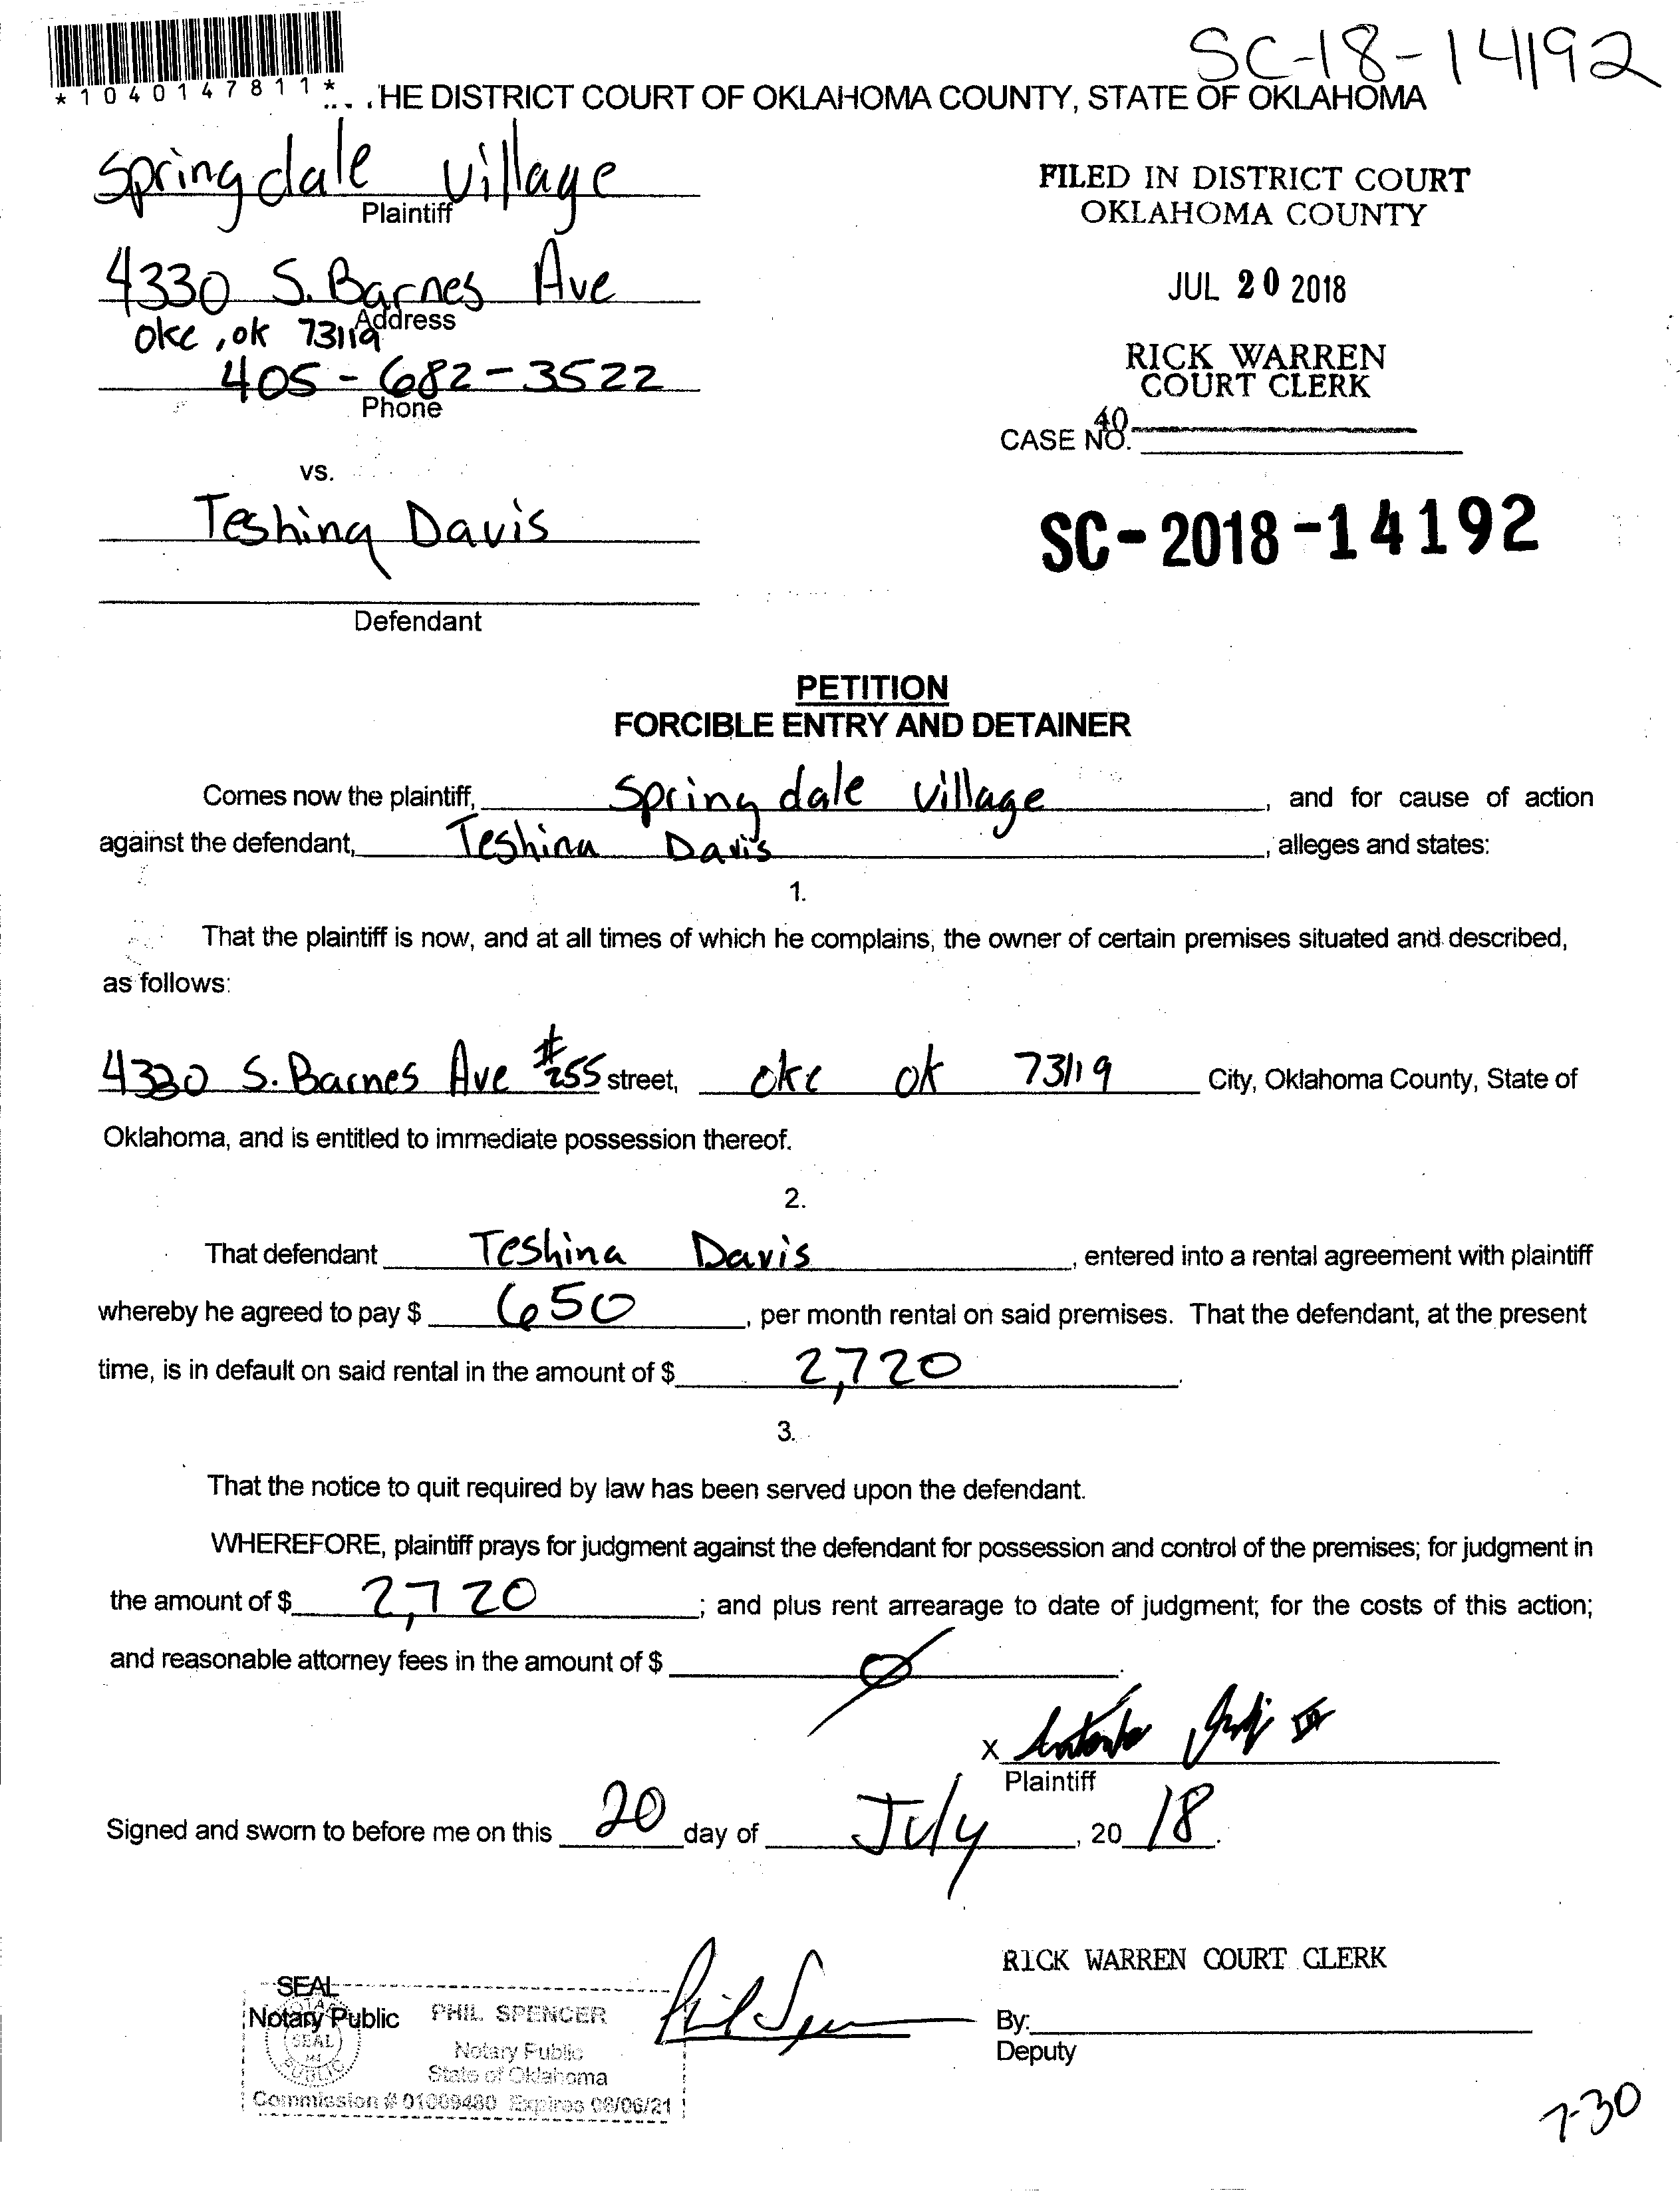 SC-18-14192
*1040147811*
HE DISTRICT COURT OF OKLAHOMA COUNTY, STATE OF OKLAHOMA
Springdale Village
Plaintiff
FILED IN DISTRICT COURT
OKLAHOMA COUNTY
4330 S. Barnes Ave
Address
okc, ok 73119
JUL 20 2018
405-682-3522
Phone
RICK WARREN
COURT CLERK
40
CASE NO.
vs.
Teshina Davis
SC-2018-14192
Defendant
PETITION
FORCIBLE ENTRY AND DETAINER
Comes now the plaintiff, Springdale Village, and for cause of action
against the defendant, Teshina Davis, alleges and states:
1.
That the plaintiff is now, and at all times of which he complains, the owner of certain premises situated and described,
as follows:
4330 S. Barnes Ave #255 street, okc ok 73119 City, Oklahoma County, State of
Oklahoma, and is entitled to immediate possession thereof.
2.
That defendant Teshina Davis, entered into a rental agreement with plaintiff
whereby he agreed to pay $ 650, per month rental on said premises. That the defendant, at the present
time, is in default on said rental in the amount of $ 2,720.
3.
That the notice to quit required by law has been served upon the defendant.
WHEREFORE, plaintiff prays for judgment against the defendant for possession and control of the premises; for judgment in
the amount of $ 2,720; and plus rent arrearage to date of judgment; for the costs of this action;
and reasonable attorney fees in the amount of $ Ø.
X
Plaintiff
Signed and sworn to before me on this 20 day of July, 2018.
RICK WARREN COURT CLERK
SEAL
Notary Public
PHIL SPENCER
Notary Public
State of Oklahoma
Commission # 01009480 Expires 08/06/21
Phil Spencer
By:
Deputy
7-30